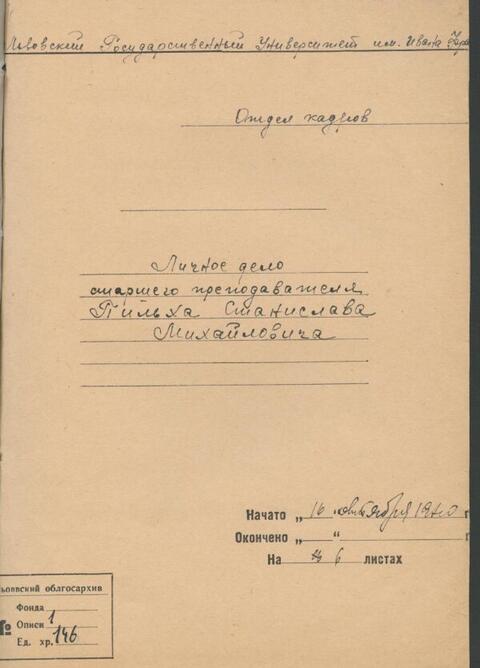 Львовский Государственный Университет им. Ивана
Отдел кадров
Личное дело
старшего преподавателя
Пильха Станислава
Михайловича
Начато „ 16 “ 19 г
Окончено „ “ г
На 6 листах
ьвовский облгосархив
№
Фонда
Описи 1
Ед. хр. 146